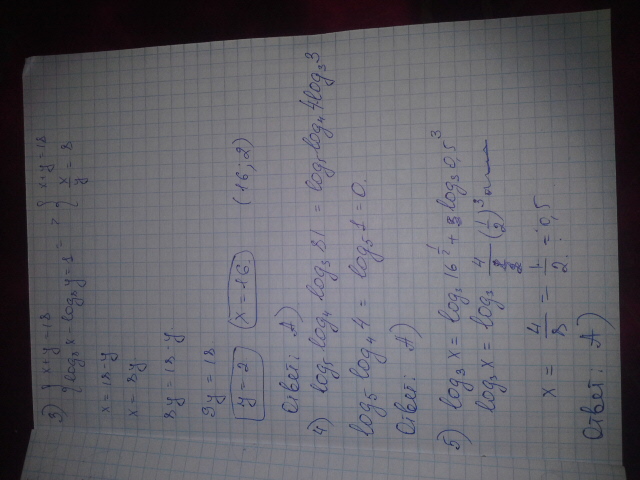 3) { x+y=18
{ log₈x - log₈y=1 = ? { x+y=18
{ x/y = 8
x=18-y
x=8y
8y=18-y
9y=18
y=2 x=16. (16;2)
Ответ: А)
4) log₅ log₄ log₃ 81 = log₅ log₄ 4log₃3
log₅ log₄ 4 = log₅ 1 = 0.
Ответ: А)
5) log₃ x = log₃ 16^½ + 3 log₃ 0,5³
log₃ x = log₃ 4 (1/2)³
x = 4/8 = 1/2 = 0,5
Ответ: А)